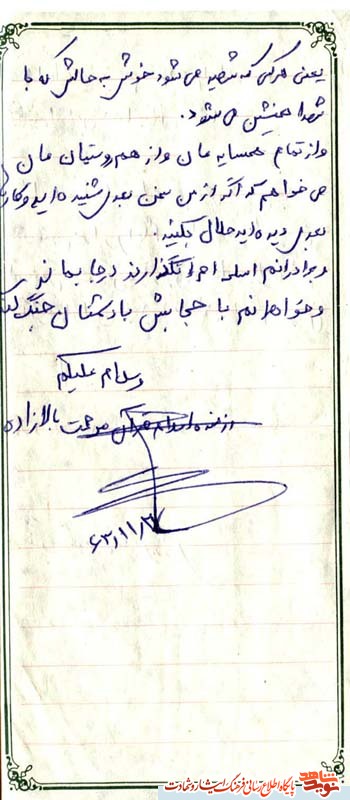 یعنی هرکسی که شهید می شود خوش به حالش که با
شهدا همنشین می شود.
و از تمام همسایه مان و از هم روستیان مان
می خواهم که اگر از من سخن بدی شنیده اید و کار
بدی دیده اید حلال بکنید.
و برادرانم اسلحه ام را نگذارند درجا بماند
و خواهرانم با حجابش با دشمنان جنگ کند
والسلام علیکم
رزمنده اسلام بالازاده
۶۳/۱۱/۳
نوید شاهد
پایگاه اطلاع رسانی فرهنگ ایثار و شهادت